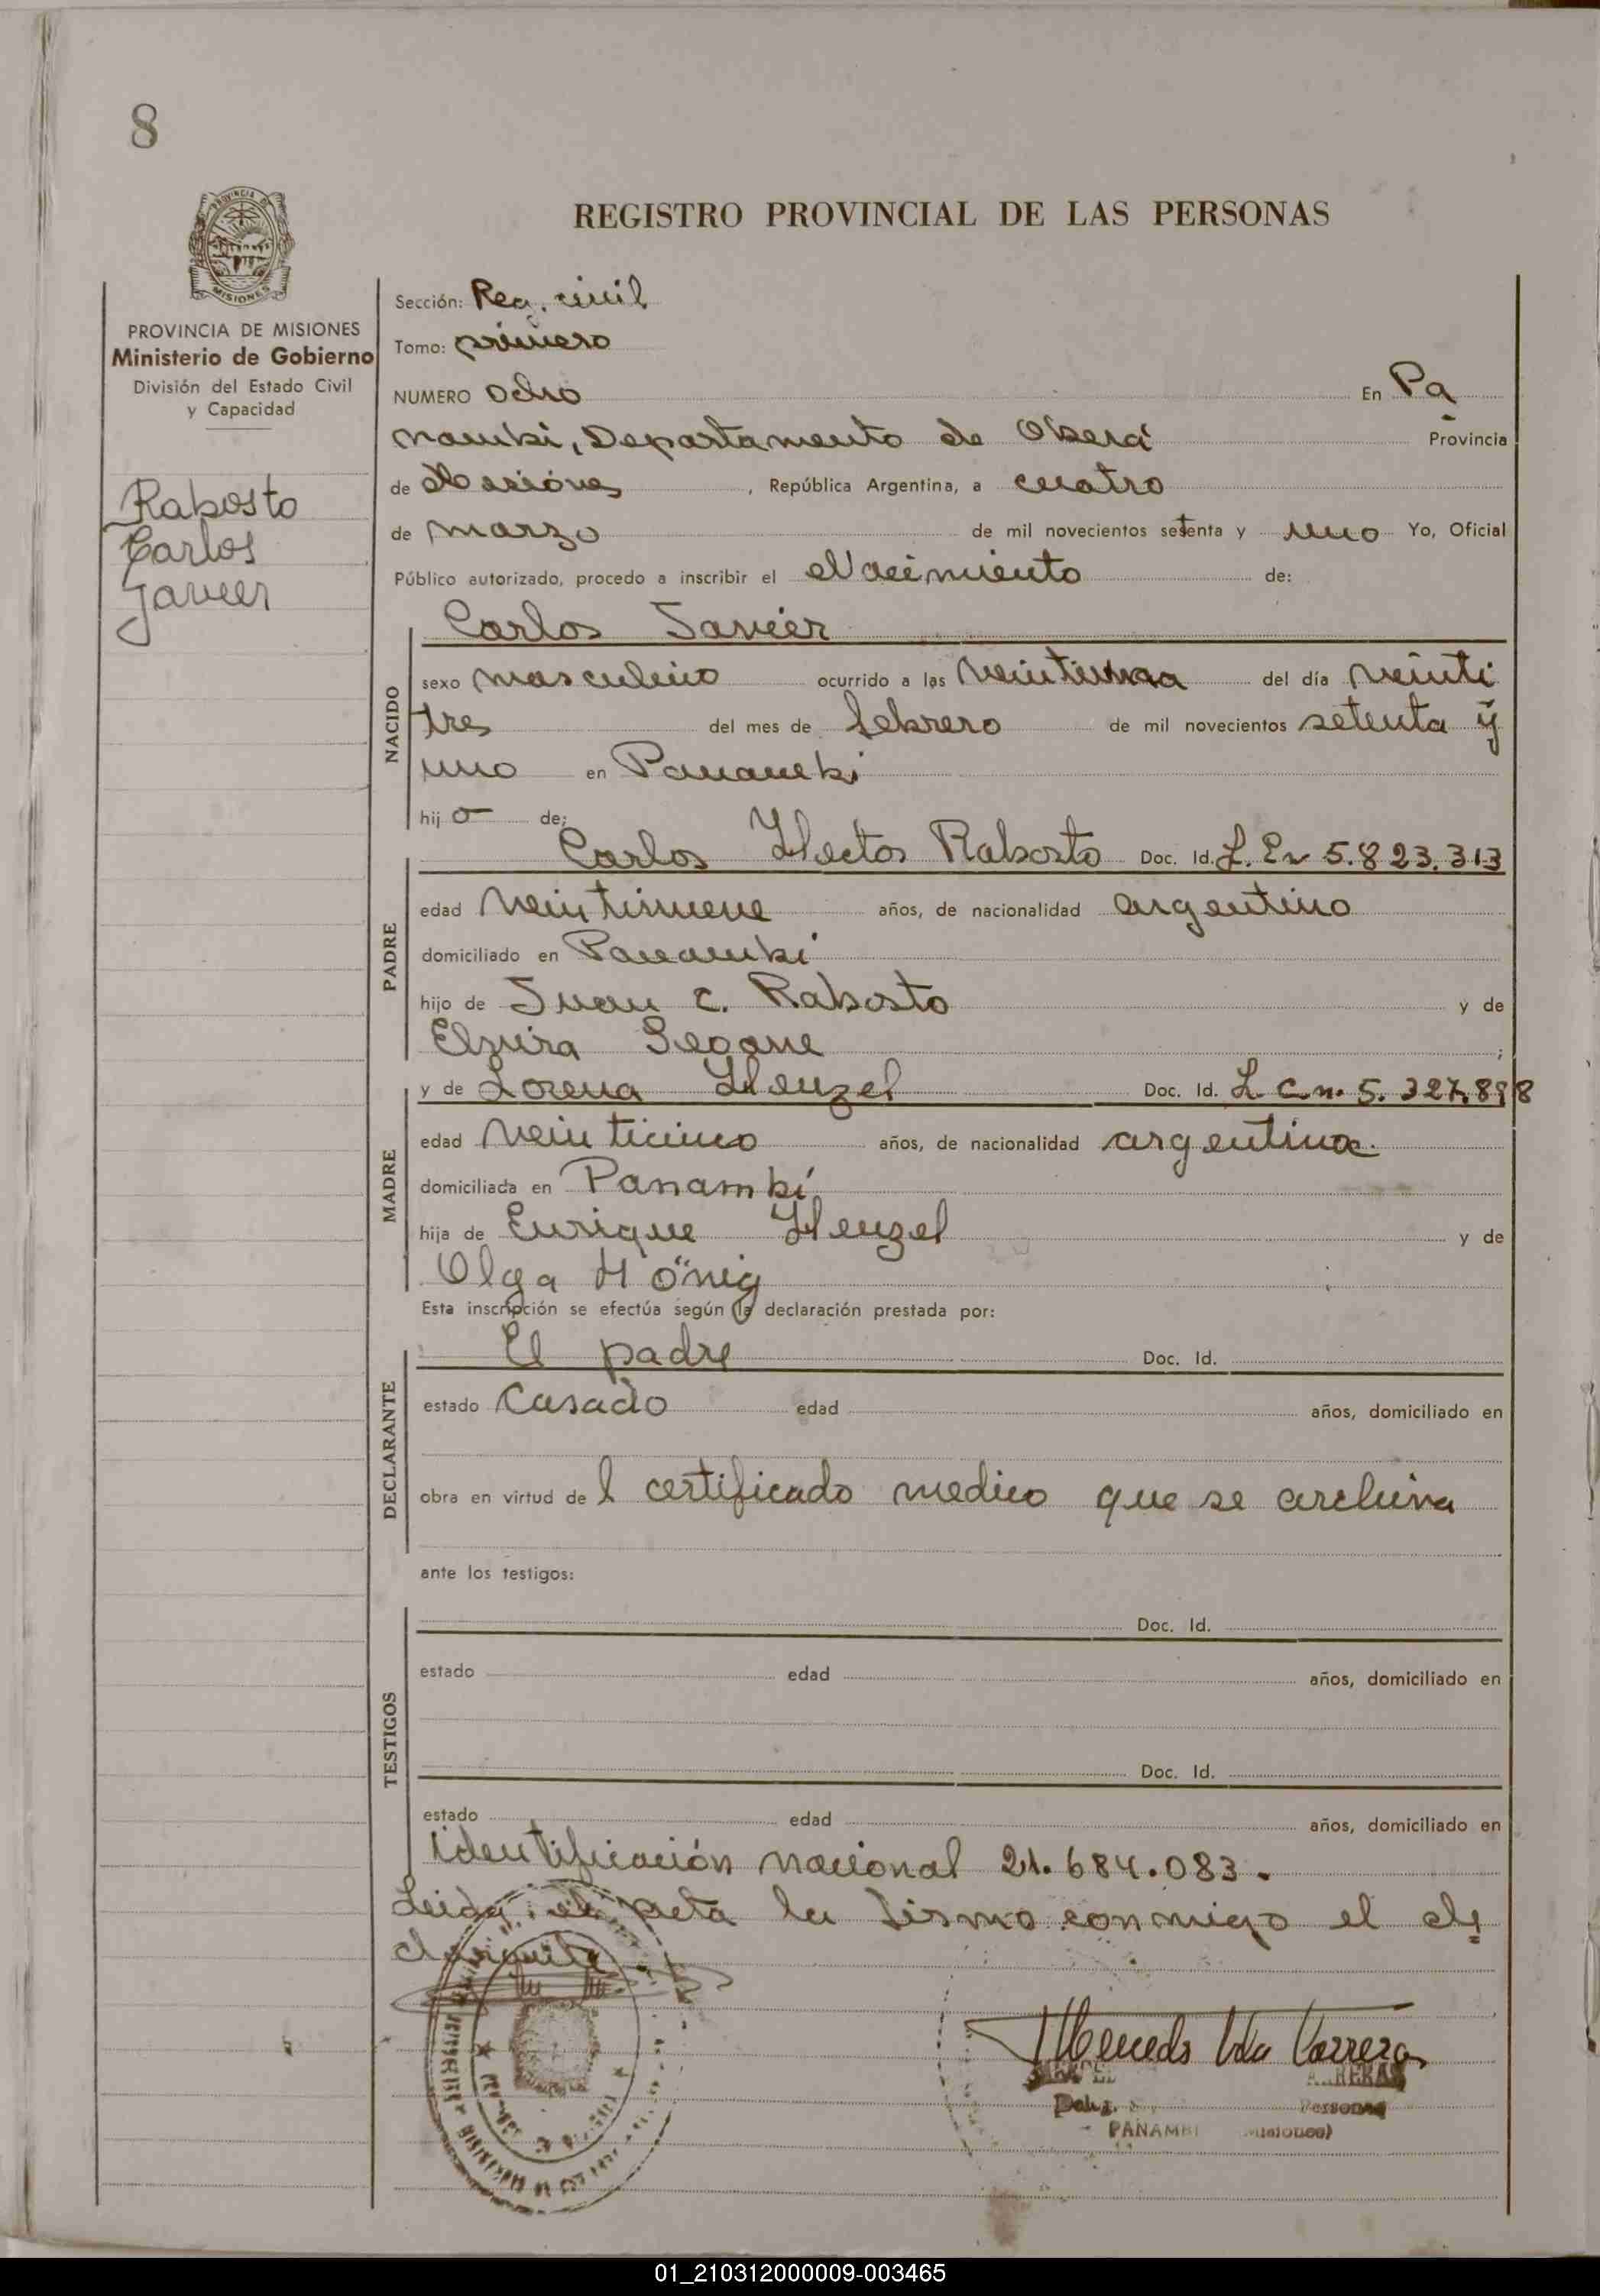 8
PROVINCIA DE MISIONES
REGISTRO PROVINCIAL DE LAS PERSONAS
PROVINCIA DE MISIONES
Ministerio de Gobierno
División del Estado Civil
y Capacidad
Rabosto
Carlos
Javier
Sección: Reg. civil
Tomo: primero
NUMERO Ocho En Pa
nambí, Departamento de Oberá Provincia
de Misiones, República Argentina, a cuatro
de marzo de mil novecientos setenta y uno Yo, Oficial
Público autorizado, procedo a inscribir el Nacimiento de:
Carlos Javier
NACIDO
sexo masculino ocurrido a las del día veinti
tres del mes de febrero de mil novecientos setenta y
uno en Panambí
hijo de:
Carlos Hector Rabosto Doc. Id. L. En 5.823.313
PADRE
edad veintinueve años, de nacionalidad argentino
domiciliado en Panambí
hijo de Juan C. Rabosto y de
Elvira Seoane ;
y de Lorena Henzel Doc. Id. L C n. 5. 327.898
MADRE
edad veinticinco años, de nacionalidad argentina
domiciliada en Panambí
hija de Enrique Henzel y de
Olga Hönig
Esta inscripción se efectúa según la declaración prestada por:
El padre Doc. Id.
DECLARANTE
estado Casado edad años, domiciliado en
obra en virtud del certificado medico que se archiva
ante los testigos:
Doc. Id.
TESTIGOS
estado edad años, domiciliado en
Doc. Id.
estado edad años, domiciliado en
identificación nacional 21.684.083.
Leida el acta la firma conmigo el de
clarante
PANAMBI
01_210312000009-003465